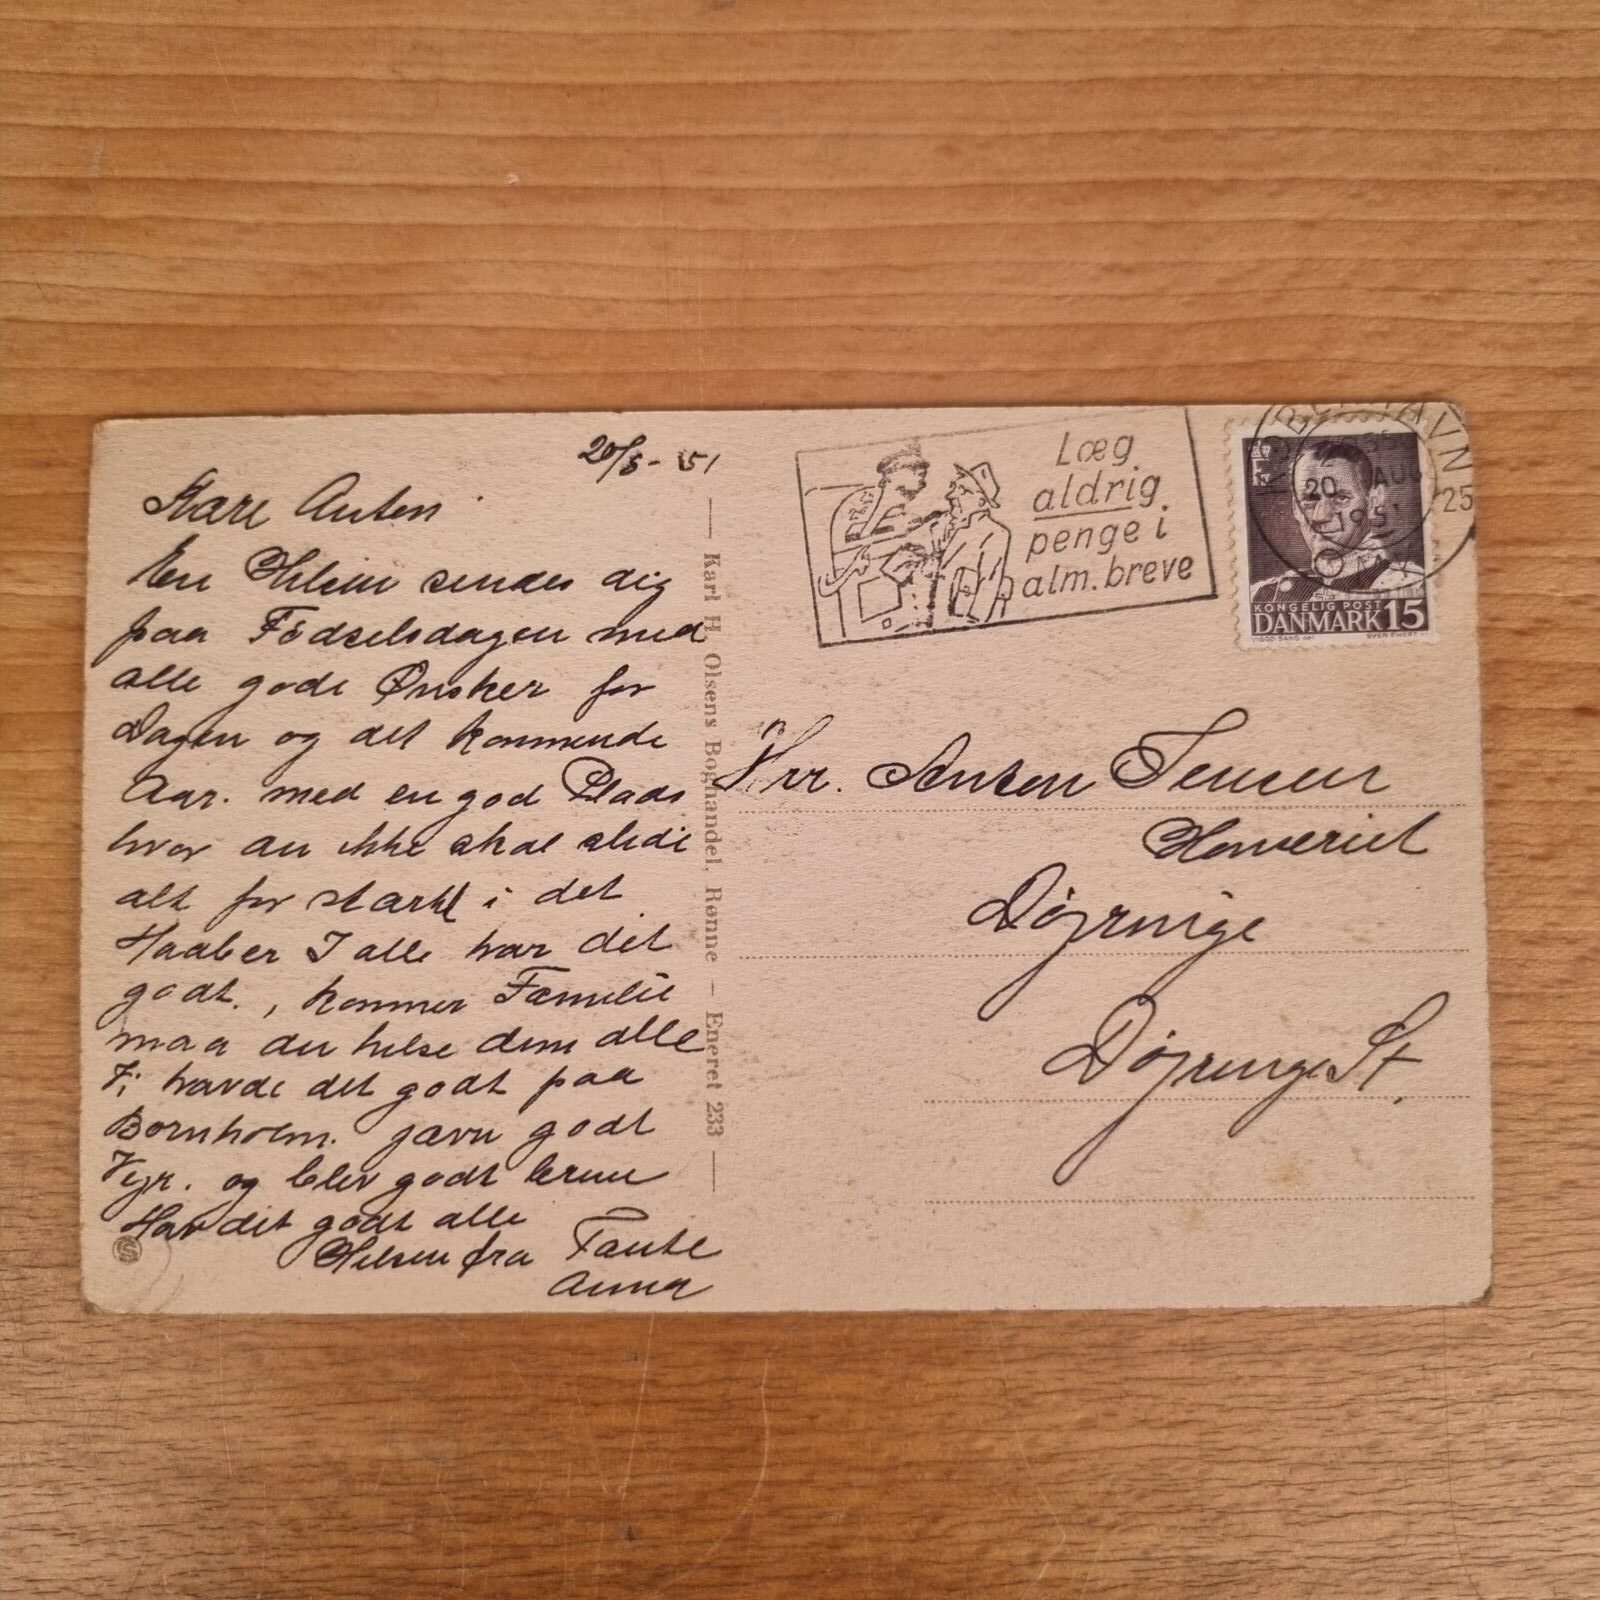 20/8-51
Kære Anton
En Hilsen sendes dig
paa Födselsdagen med
alle gode Ønsker for
Dagen og det kommende
Aar. med en god Plads
hvor du ikke skal slide
alt for stærkt i det
Haaber I alle har det
godt., kommer Familie
maa du hilse dem alle
Vi havde det godt paa
Bornholm. jævn godt
Vejr. og blev godt brune
Hav det godt alle
Hilsen fra Tante
Anna
— Karl H. Olsens Boghandel, Rønne — Eneret 233 —
Læg
aldrig
penge i
alm. breve
KØBENHAVN
20 AUG
1951
OMK
25
KONGELIG POST
DANMARK 15
VIGGO BANG del
SVEN EWERT
Hrr. Anton Jensen
Døjringe
Døjringe St.